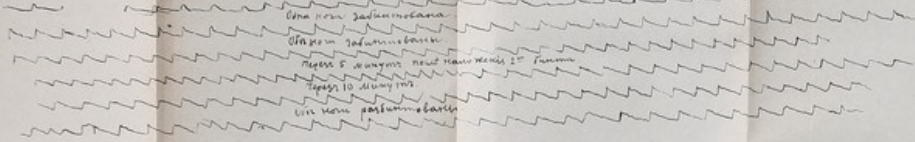 Одна нога забинтована.
Обѣ ноги забинтованы.
Через 5 минутъ послѣ наложенія 2го бинта
Через 10 минутъ.
ноги разбинтованы